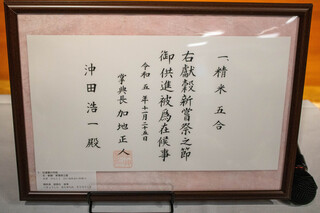 一、精米 五合
右獻穀新嘗祭之節
御供進被為在候事
令和五年十一月二十五日
掌典長 加地正人
沖田浩一殿